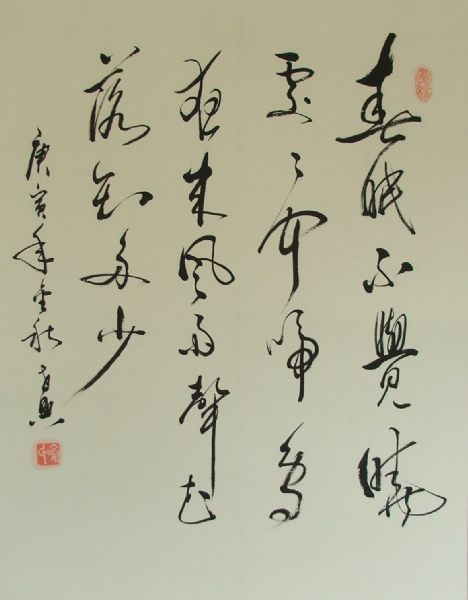 春眠不覺曉
處々聞啼鳥
夜来風雨聲花
落知多少
庚寅年金秋